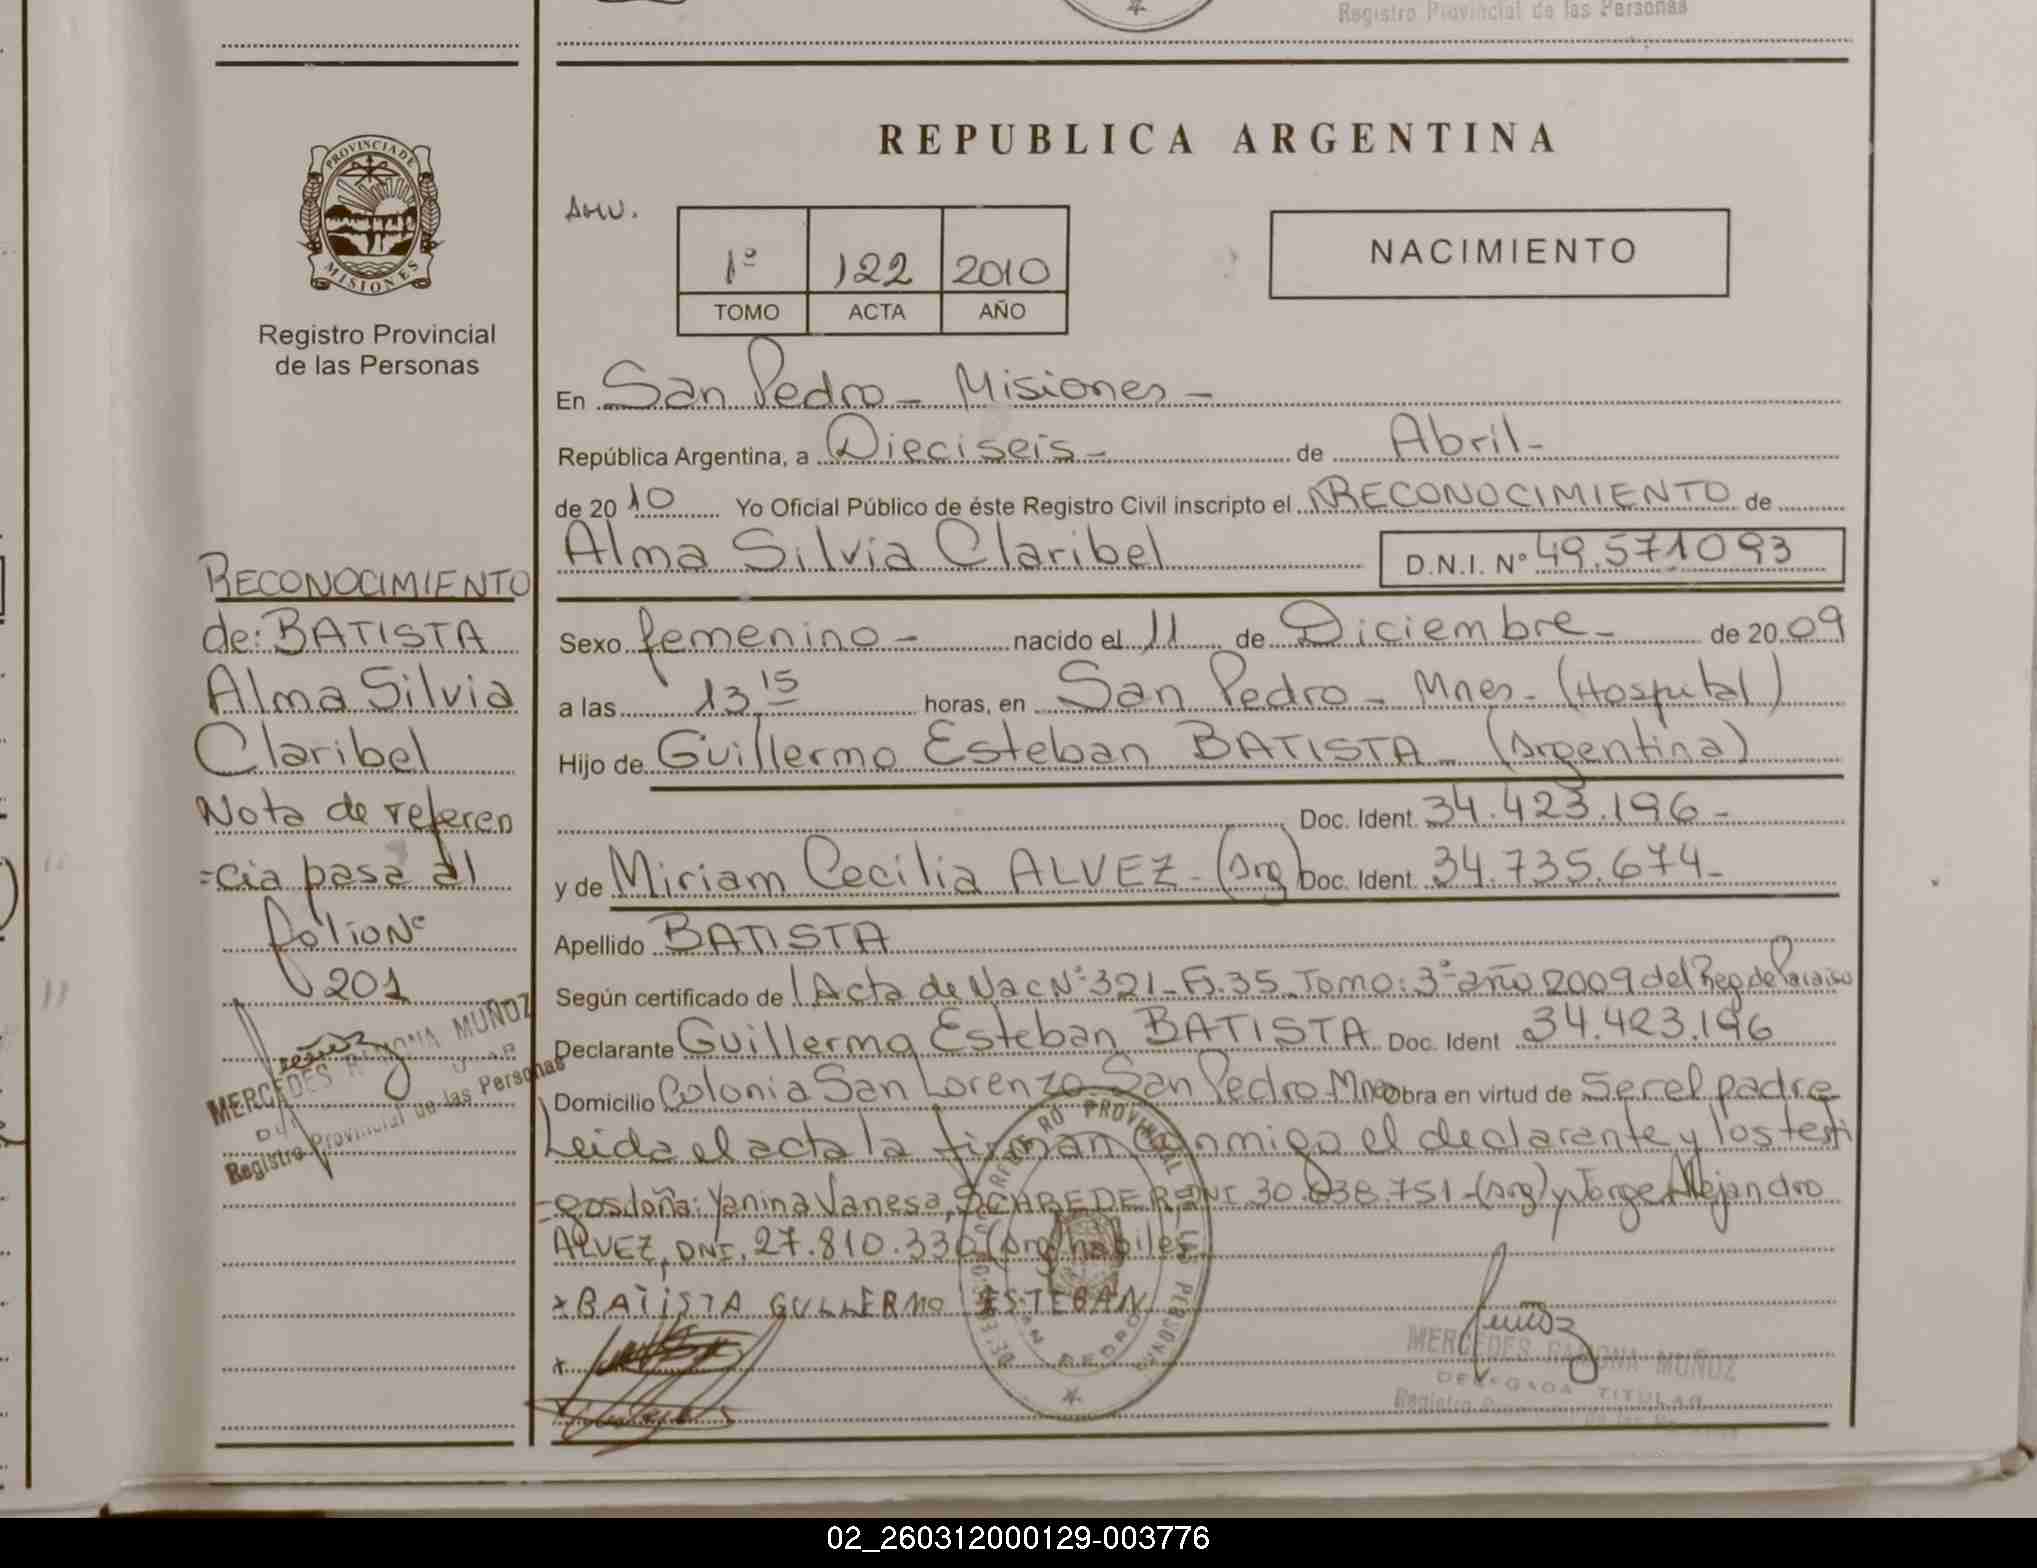 Registro Provincial de las Personas
REPUBLICA ARGENTINA
PROVINCIA DE
MISIONES
Registro Provincial
de las Personas
1º 122 2010
TOMO ACTA AÑO
NACIMIENTO
En San Pedro - Misiones -
República Argentina, a Dieciseis - de Abril -
de 2010 Yo Oficial Público de éste Registro Civil inscripto el RECONOCIMIENTO de
Alma Silvia Claribel D.N.I. Nº 49.571093
Sexo femenino - nacido el 11 de Diciembre - de 2009
a las 13 15 horas, en San Pedro - Mnes - (Hospital)
Hijo de Guillermo Esteban BATISTA - (Argentina)
Doc. Ident. 34.423.196 -
y de Miriam Cecilia ALVEZ - (Arg) Doc. Ident. 34.735.674 -
Apellido BATISTA
Según certificado de Acta de Nac Nº 321 - Fº 35 - Tomo: 3º año 2009 del Reg de Paraiso
Declarante Guillermo Esteban BATISTA Doc. Ident 34.423.196
Domicilio Colonia San Lorenzo San Pedro - Mnes Obra en virtud de Ser el padre
Leida el acta la firman conmigo el declarante y los testi
=gos doña: Yanina Vanesa, SCHREDER, DNI. 30.838.751 - (Arg) y Jorge Alejandro
ALVEZ, DNI. 27.810.330 (Arg) habiles
x BATISTA GULLERMO ESTEBAN
x
RECONOCIMIENTO
de: BATISTA
Alma Silvia
Claribel
Nota de referen
=cia pasa al
folio Nº
201
MERCEDES RAMONA MUÑOZ
Registro Provincial de las Personas
REGISTRO PROVINCIAL DE LAS PERSONAS
SAN PEDRO
MERCEDES RAMONA MUÑOZ
DELEGADA TITULAR
Registro Provincial de las Personas
02_260312000129-003776